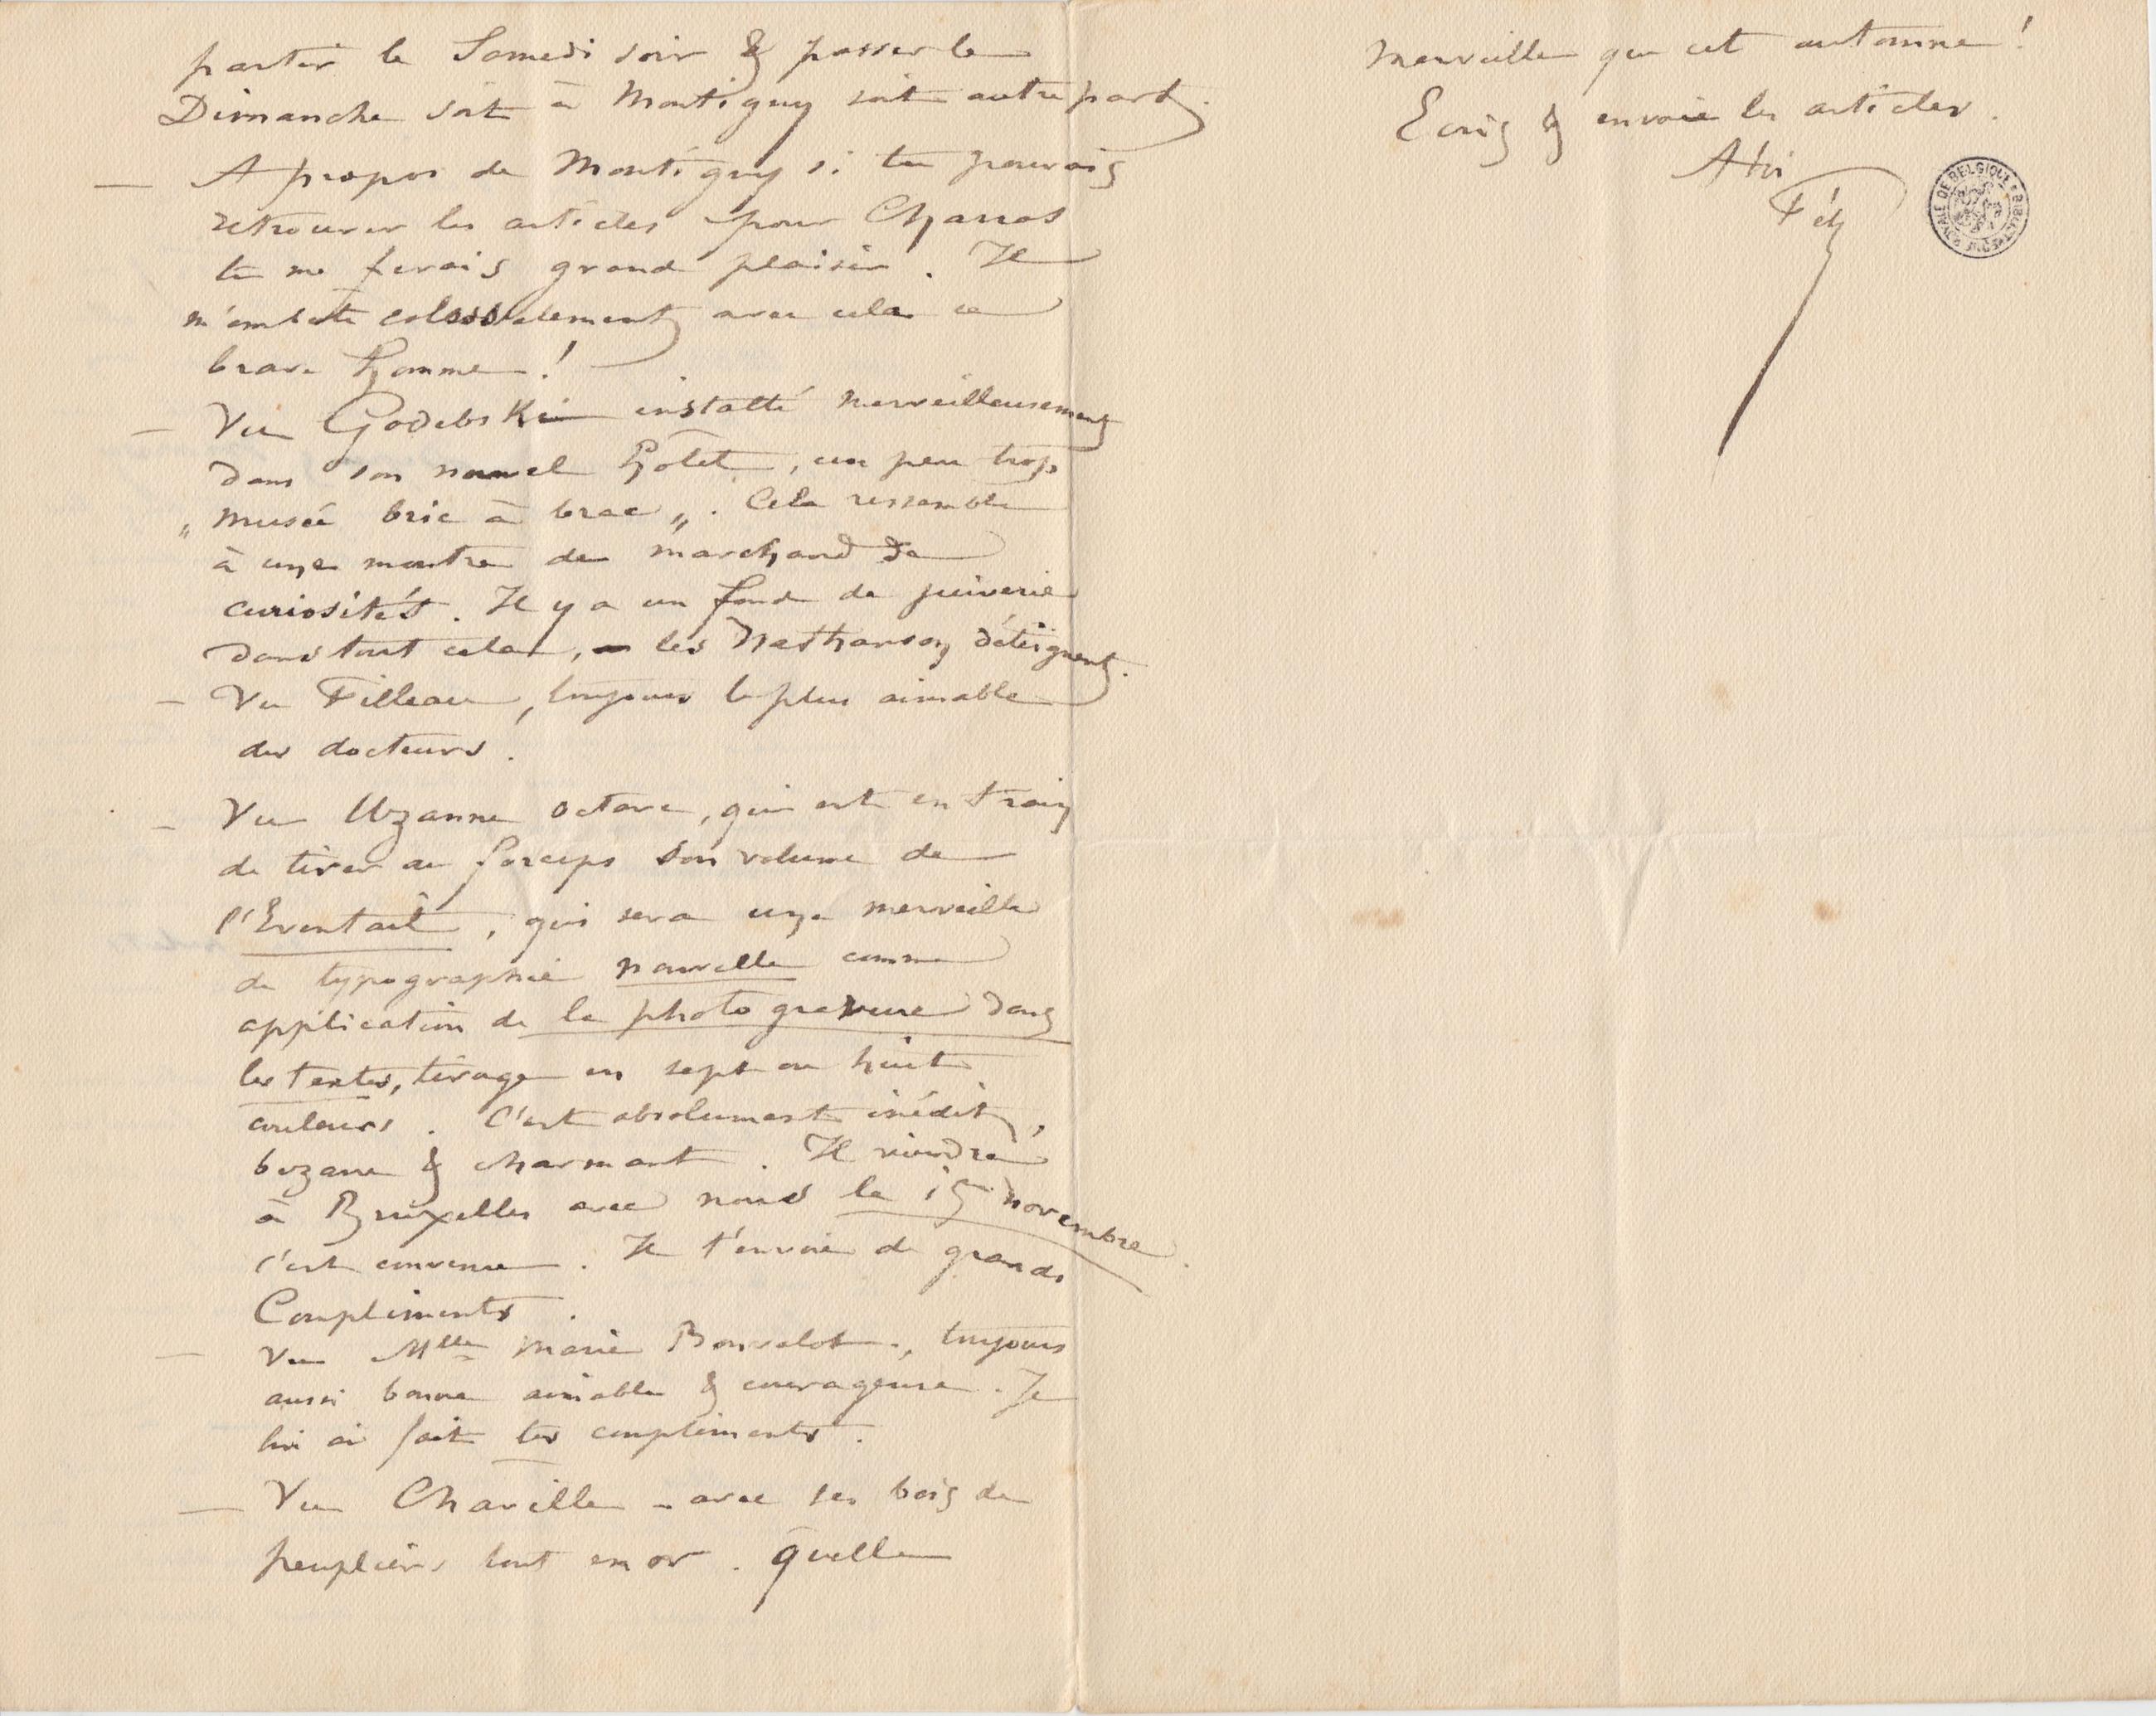 partir le Samedi soir & passer le
Dimanche soit à Montigny soit autre part.
— A propos de Montigny si tu pouvais
retrouver les articles pour Charras
tu me ferais grand plaisir. Il
m'embête colossalement avec cela ce
brave homme !
— Vu Godebski installé merveilleusement
dans son nouvel hôtel, un peu trop
„ musée bric à brac „. Cela ressemble
à une montre de marchand de
curiosités. Il y a un fond de juiverie
dans tout cela, – les Nathanson déteignent.
— Vu Filleau, toujours le plus aimable
des docteurs.
— Vu Uzanne Octave, qui est en train
de tirer au forceps son volume de
l'Eventail, qui sera une merveille
de typographie nouvelle comme
application de la photogravure dans
les textes, tirage en sept ou huit
couleurs. C'est absolument inédit,
bizarre & charmant. Il viendra
à Bruxelles avec nous le 15 novembre
c'est convenu. Il t'envoie de grands
Compliments.
— Vu Mlle Marie Bonvalot, toujours
aussi bonne aimable & courageuse. Je
lui ai fait tes compliments.
— Vu Chaville – avec ses bois de
peupliers tout en or. Quelle
merveille que cet automne !
Ecris & envoie les articles.
A toi
Fély
BIBLIOTHÈQUE ROYALE DE BELGIQUE